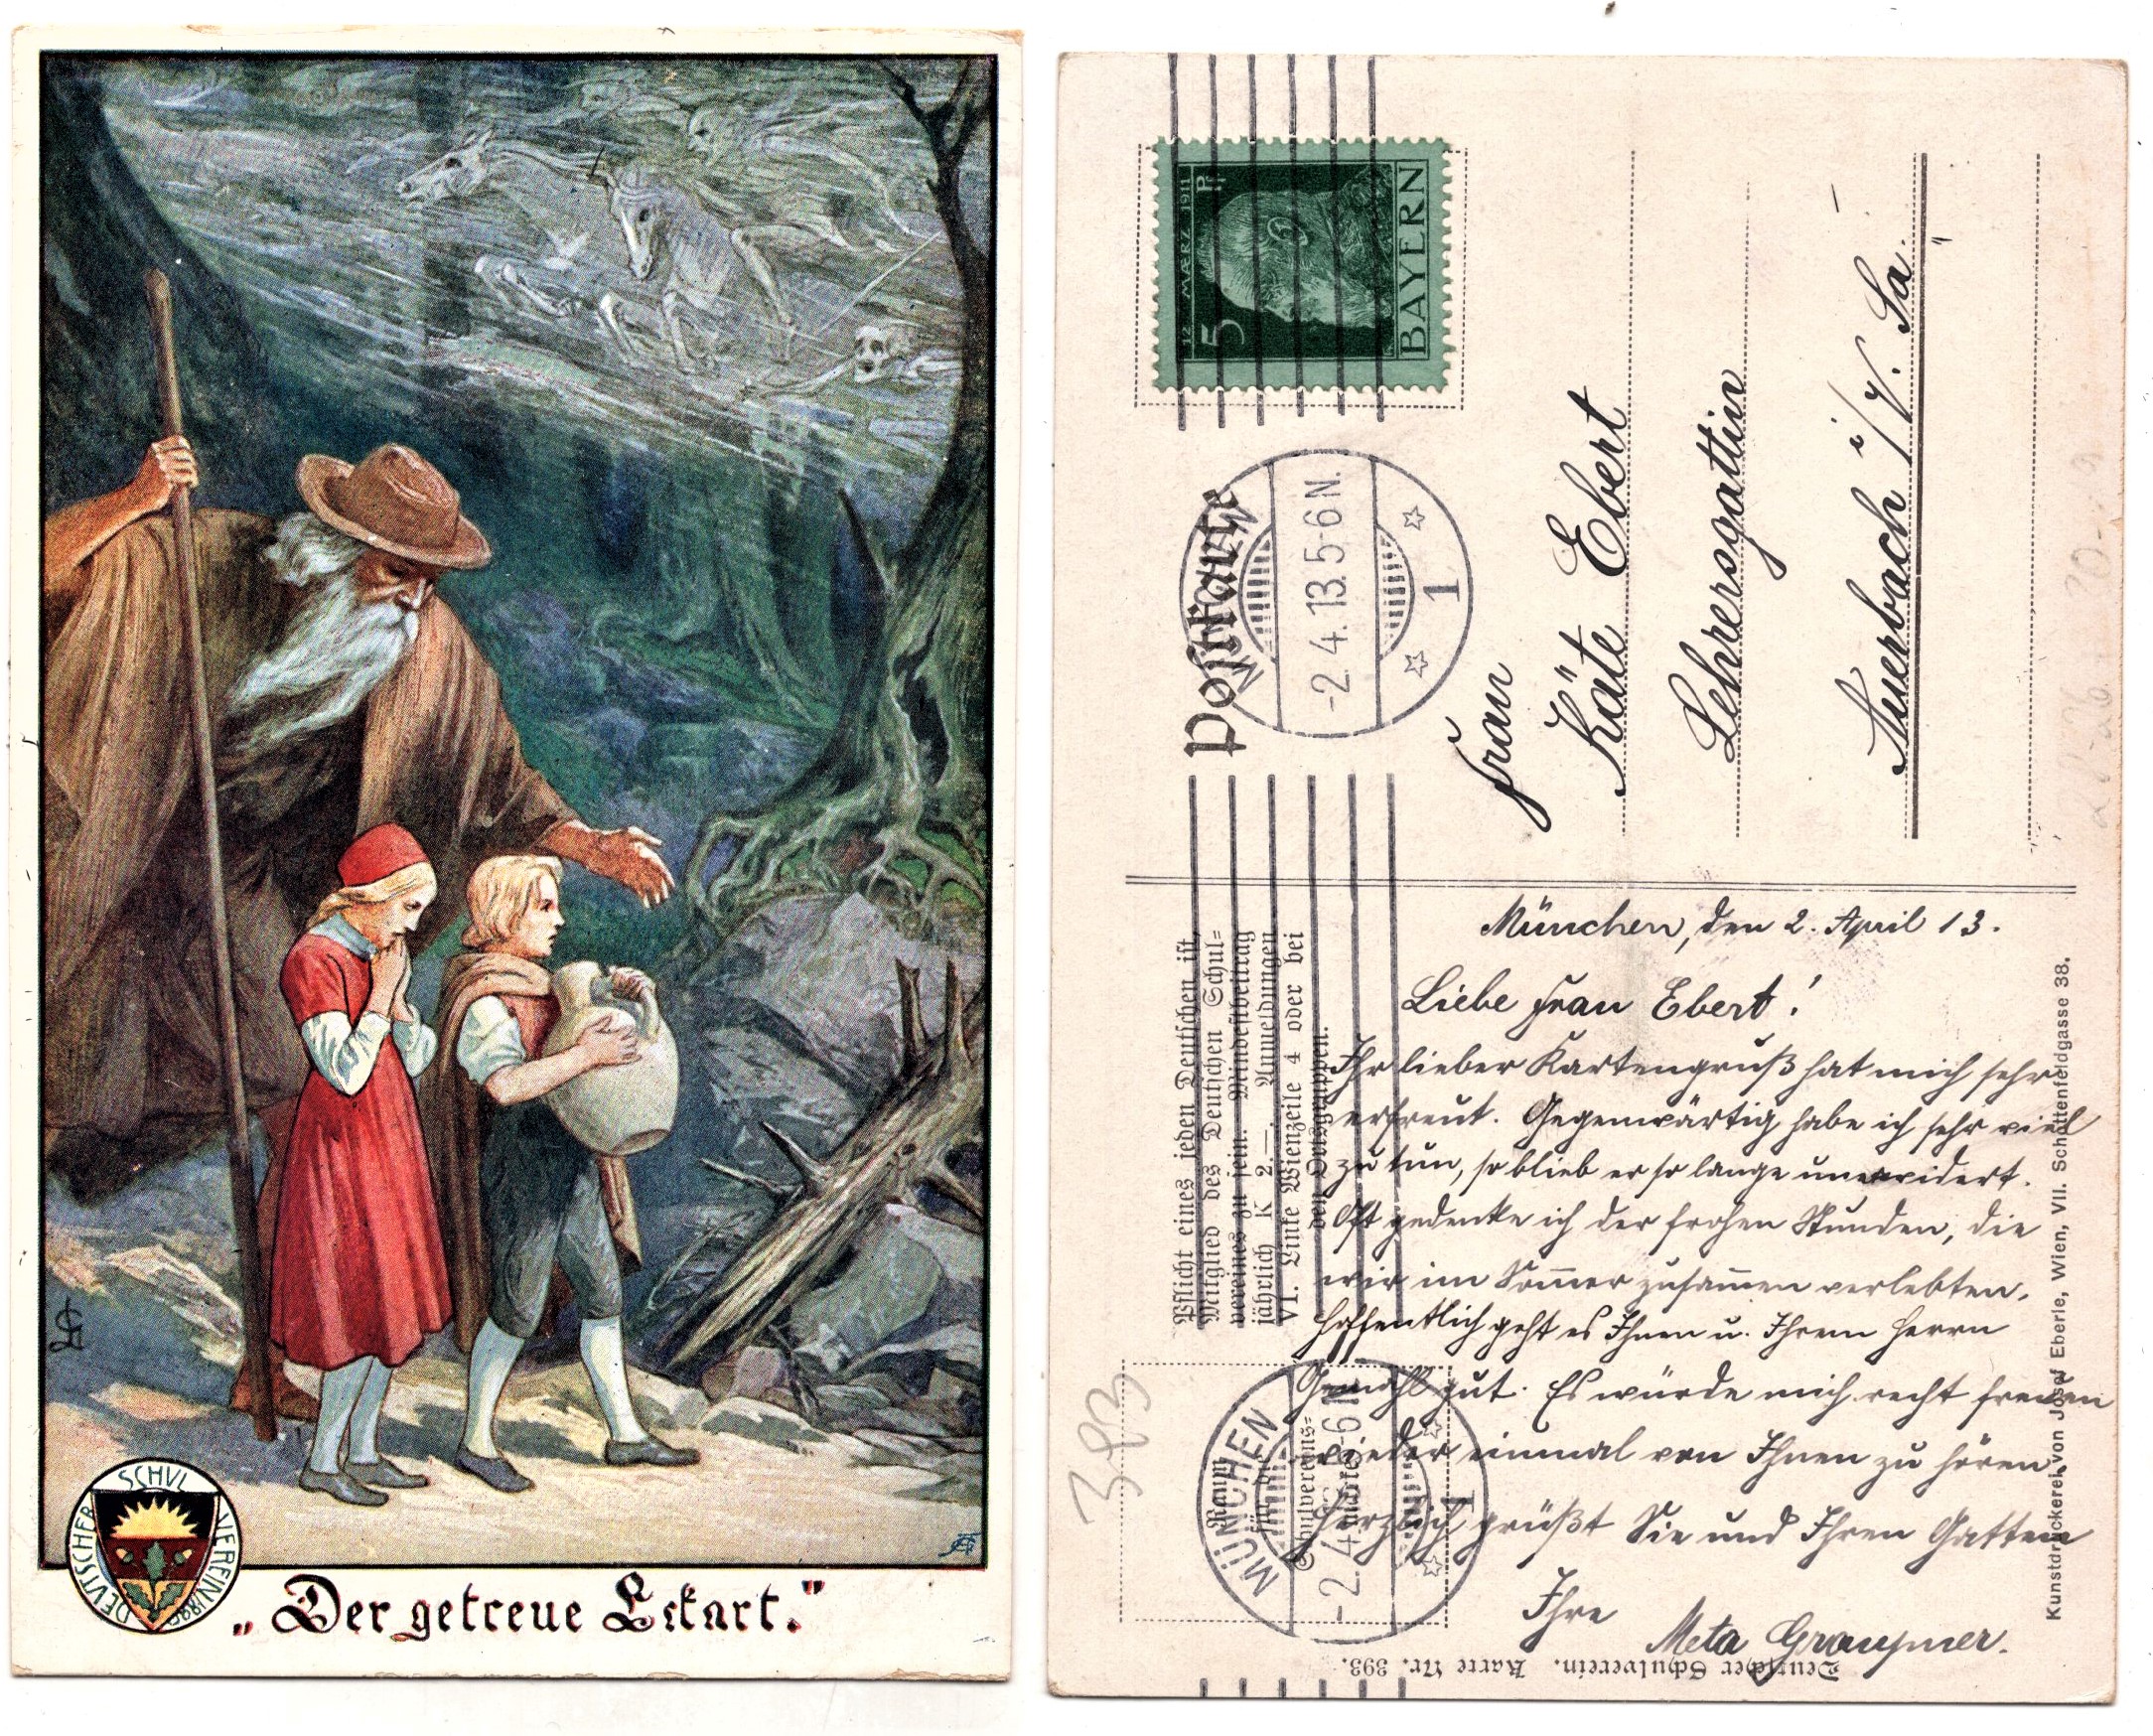 DEUTSCHER SCHUL VEREIN 1880
„Der getreue Eckart."
BAYERN
5 Pf
12 MÆRZ 1911
Postkarte
MÜNCHEN
-2.4.13.5-6N.
1
Frau
Käte Ebert
Lehrersgattin
Auerbach i/V. Sa.
Pflicht eines jeden Deutschen ist,
Mitglied des Deutschen Schul-
vereines zu sein. Mindestbeitrag
jährlich K 2.—. Anmeldungen
VI. Linke Wienzeile 4 oder bei
den Ortsgruppen.
München, den 2. April 13.
Liebe Frau Ebert!
Ihr lieber Kartengruß hat mich sehr
erfreut. Gegenwärtig habe ich sehr viel
zu tun, so blieb er so lange unerwidert.
Oft gedenke ich der frohen Stunden, die
wir im Som̅er zusam̅en verlebten.
Hoffentlich geht es Ihnen u. Ihrem Herrn
Gemahl gut. Es würde mich recht freuen
wieder einmal von Ihnen zu hören.
Herzlich grüßt Sie und Ihren Gatten
Ihre
Meta Graupner.
Raum
für die
Schulvereins-
marke
MÜNCHEN
-2.4.13.5-6N.
1
383
Deutscher Schulverein. Karte Nr. 393.
Kunstdruckerei von Josef Eberle, Wien, VII. Schottenfeldgasse 38.